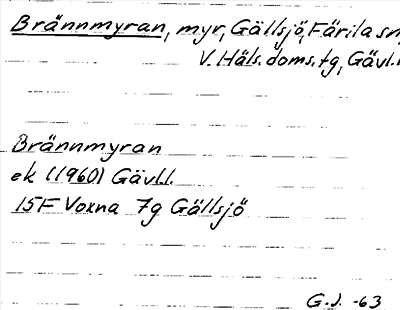 Brännmyran, myr, Gällsjö, Färila sn,
V. Häls. doms. tg, Gävl.l
Brännmyran
ek (1960) Gävl.l.
15F Voxna 7g Gällsjö
G.J. -63